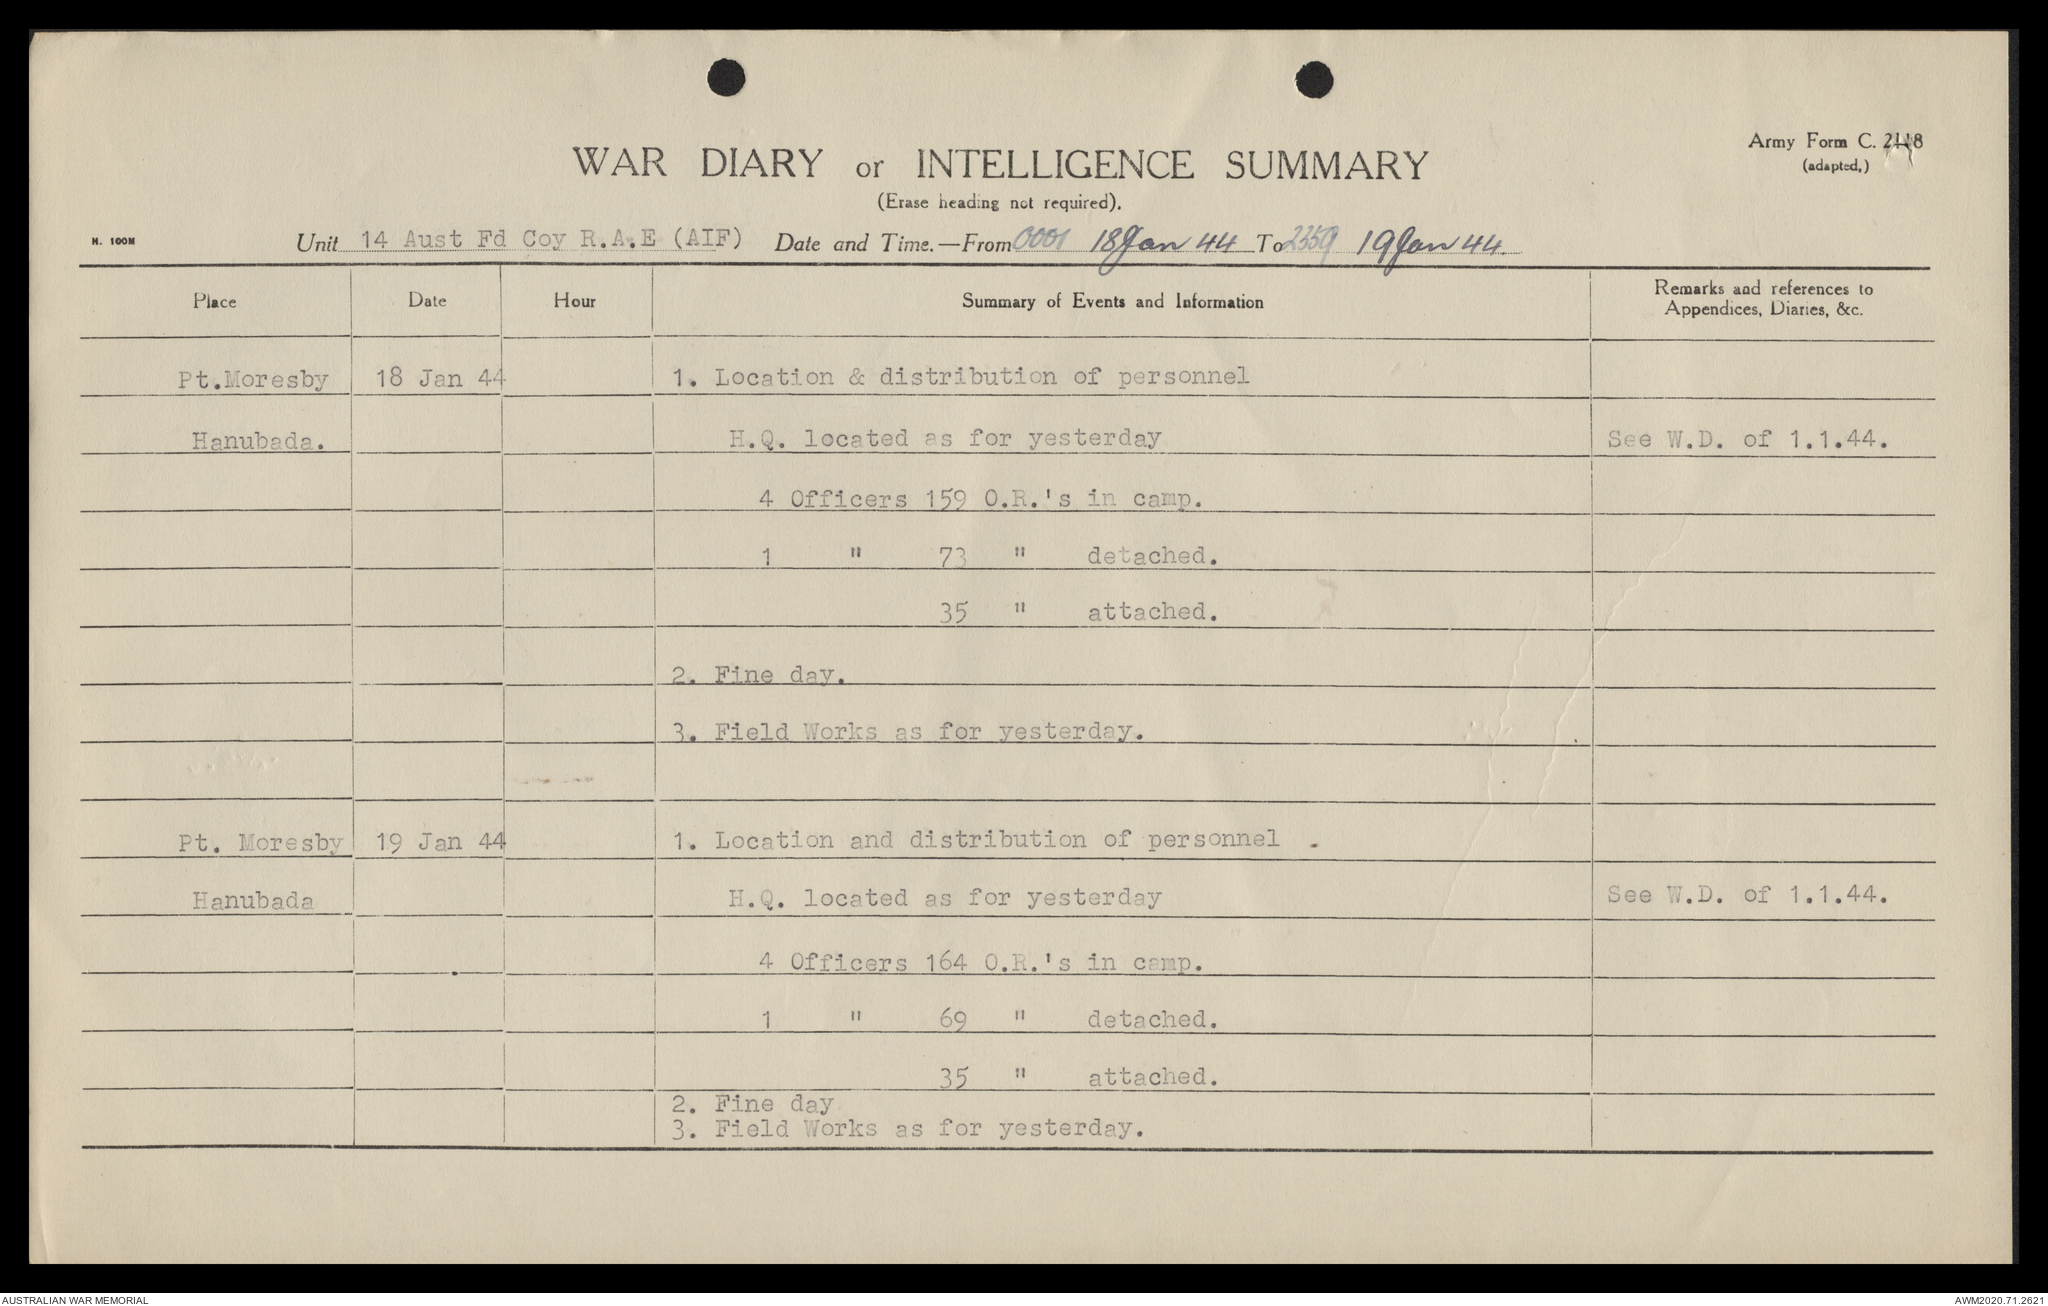 Army Form C. 2118
(adapted.)
WAR DIARY or INTELLIGENCE SUMMARY
(Erase heading not required).
H. 100M
Unit 14 Aust Fd Coy R.A.E (AIF) Date and Time.—From 0001 18 Jan 44 To 2359 19 Jan 44.
Place Date Hour Summary of Events and Information Remarks and references to
Appendices, Diaries, &c.
Pt.Moresby 18 Jan 44 1. Location & distribution of personnel
Hanubada. H.Q. located as for yesterday See W.D. of 1.1.44.
4 Officers 159 O.R.'s in camp.
1 " 73 " detached.
35 " attached.
2. Fine day.
3. Field Works as for yesterday.
Pt. Moresby 19 Jan 44 1. Location and distribution of personnel .
Hanubada H.Q. located as for yesterday See W.D. of 1.1.44.
4 Officers 164 O.R.'s in camp.
1 " 69 " detached.
35 " attached.
2. Fine day
3. Field Works as for yesterday.
AUSTRALIAN WAR MEMORIAL AWM2020.71.2621